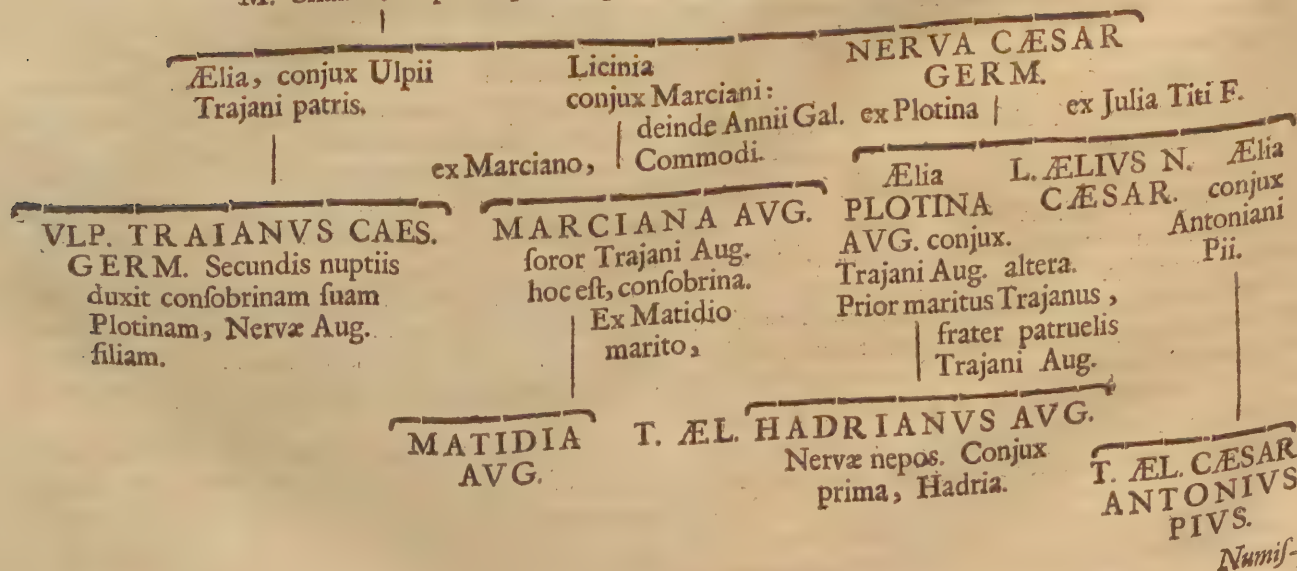 Ælia, conjux Ulpii
Trajani patris.
Licinia
conjux Marciani:
deinde Annii Gal.
Commodi.
ex Marciano,
NERVA CÆSAR
GERM.
ex Plotina
ex Julia Titi F.
VLP. TRAIANVS CAES.
GERM. Secundis nuptiis
duxit conſobrinam ſuam
Plotinam, Nervæ Aug.
filiam.
MARCIANA AVG.
ſoror Trajani Aug.
hoc eſt, conſobrina.
Ex Matidio
marito,
Ælia
PLOTINA
AVG. conjux.
Trajani Aug. altera.
Prior maritus Trajanus,
frater patruelis
Trajani Aug.
L. ÆLIVS N.
CÆSAR.
Ælia
conjux
Antoniani
Pii.
MATIDIA
AVG.
T. ÆL. HADRIANVS AVG.
Nervæ nepos. Conjux
prima, Hadria.
T. ÆL. CÆSAR
ANTONIVS
PIVS.
Numiſ-